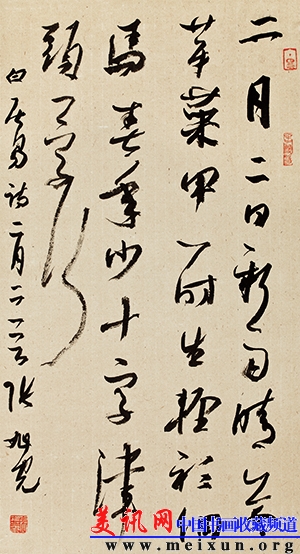 二月二日新雨晴草
芽菜甲一时生轻衫细
马春年少十字津
頭一字行
白居易诗二月二一 张旭光
美讯网 中国书画收藏频道
www.meixun.org